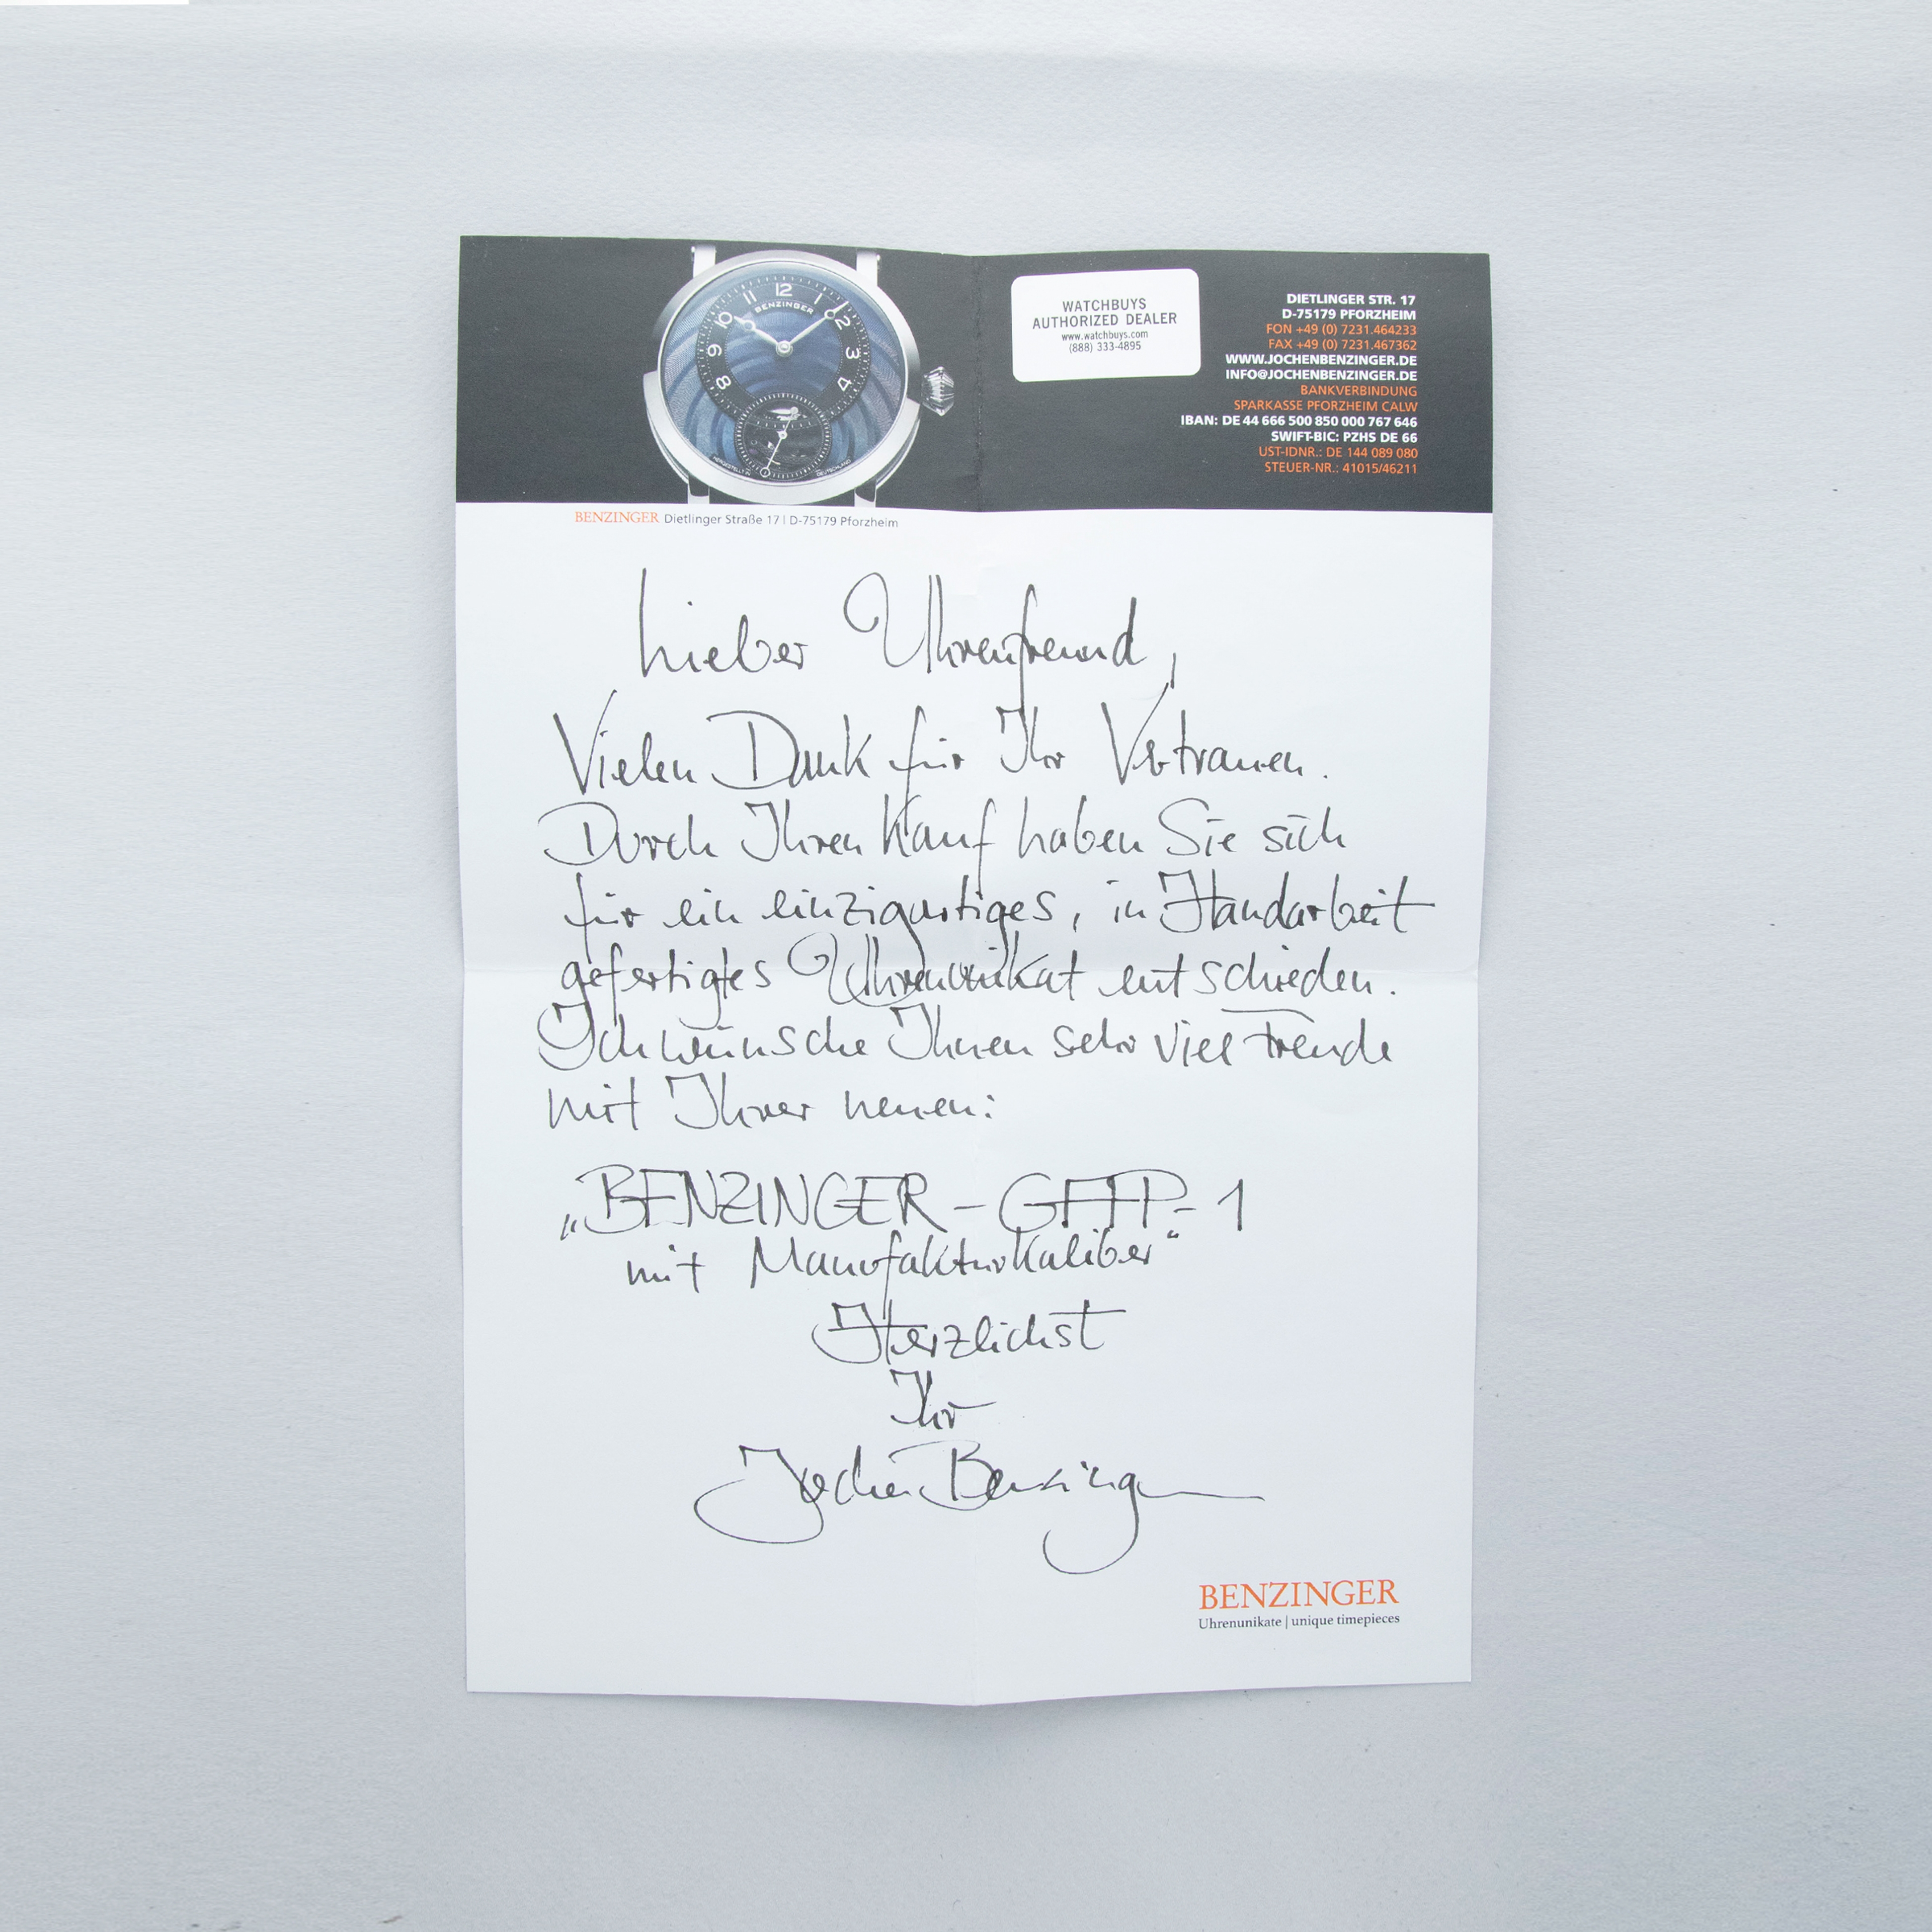 12
11
1
10
2
9
3
8
4
BENZINGER
WATCHBUYS
AUTHORIZED DEALER
www.watchbuys.com
(888) 333-4895
DIETLINGER STR. 17
D-75179 PFORZHEIM
FON +49 (0) 7231.464233
FAX +49 (0) 7231.467362
WWW.JOCHENBENZINGER.DE
INFO@JOCHENBENZINGER.DE
BANKVERBINDUNG
SPARKASSE PFORZHEIM CALW
IBAN: DE 44 666 500 850 000 767 646
SWIFT-BIC: PZHS DE 66
UST-IDNR.: DE 144 089 080
STEUER-NR.: 41015/46211
BENZINGER Dietlinger Straße 17 | D-75179 Pforzheim
Lieber Uhrenfreund,
Vielen Dank für Ihr Vertrauen.
Durch Ihren Kauf haben Sie sich
für ein einzigartiges, in Handarbeit
gefertigtes Uhrenunikat entschieden.
Ich wünsche Ihnen sehr viel Freude
mit Ihrer neuen:
„BENZINGER-GFFP-1
mit Manufakturkaliber“
Herzlichst
Ihr
Jochen Benzinger
BENZINGER
Uhrenunikate | unique timepieces